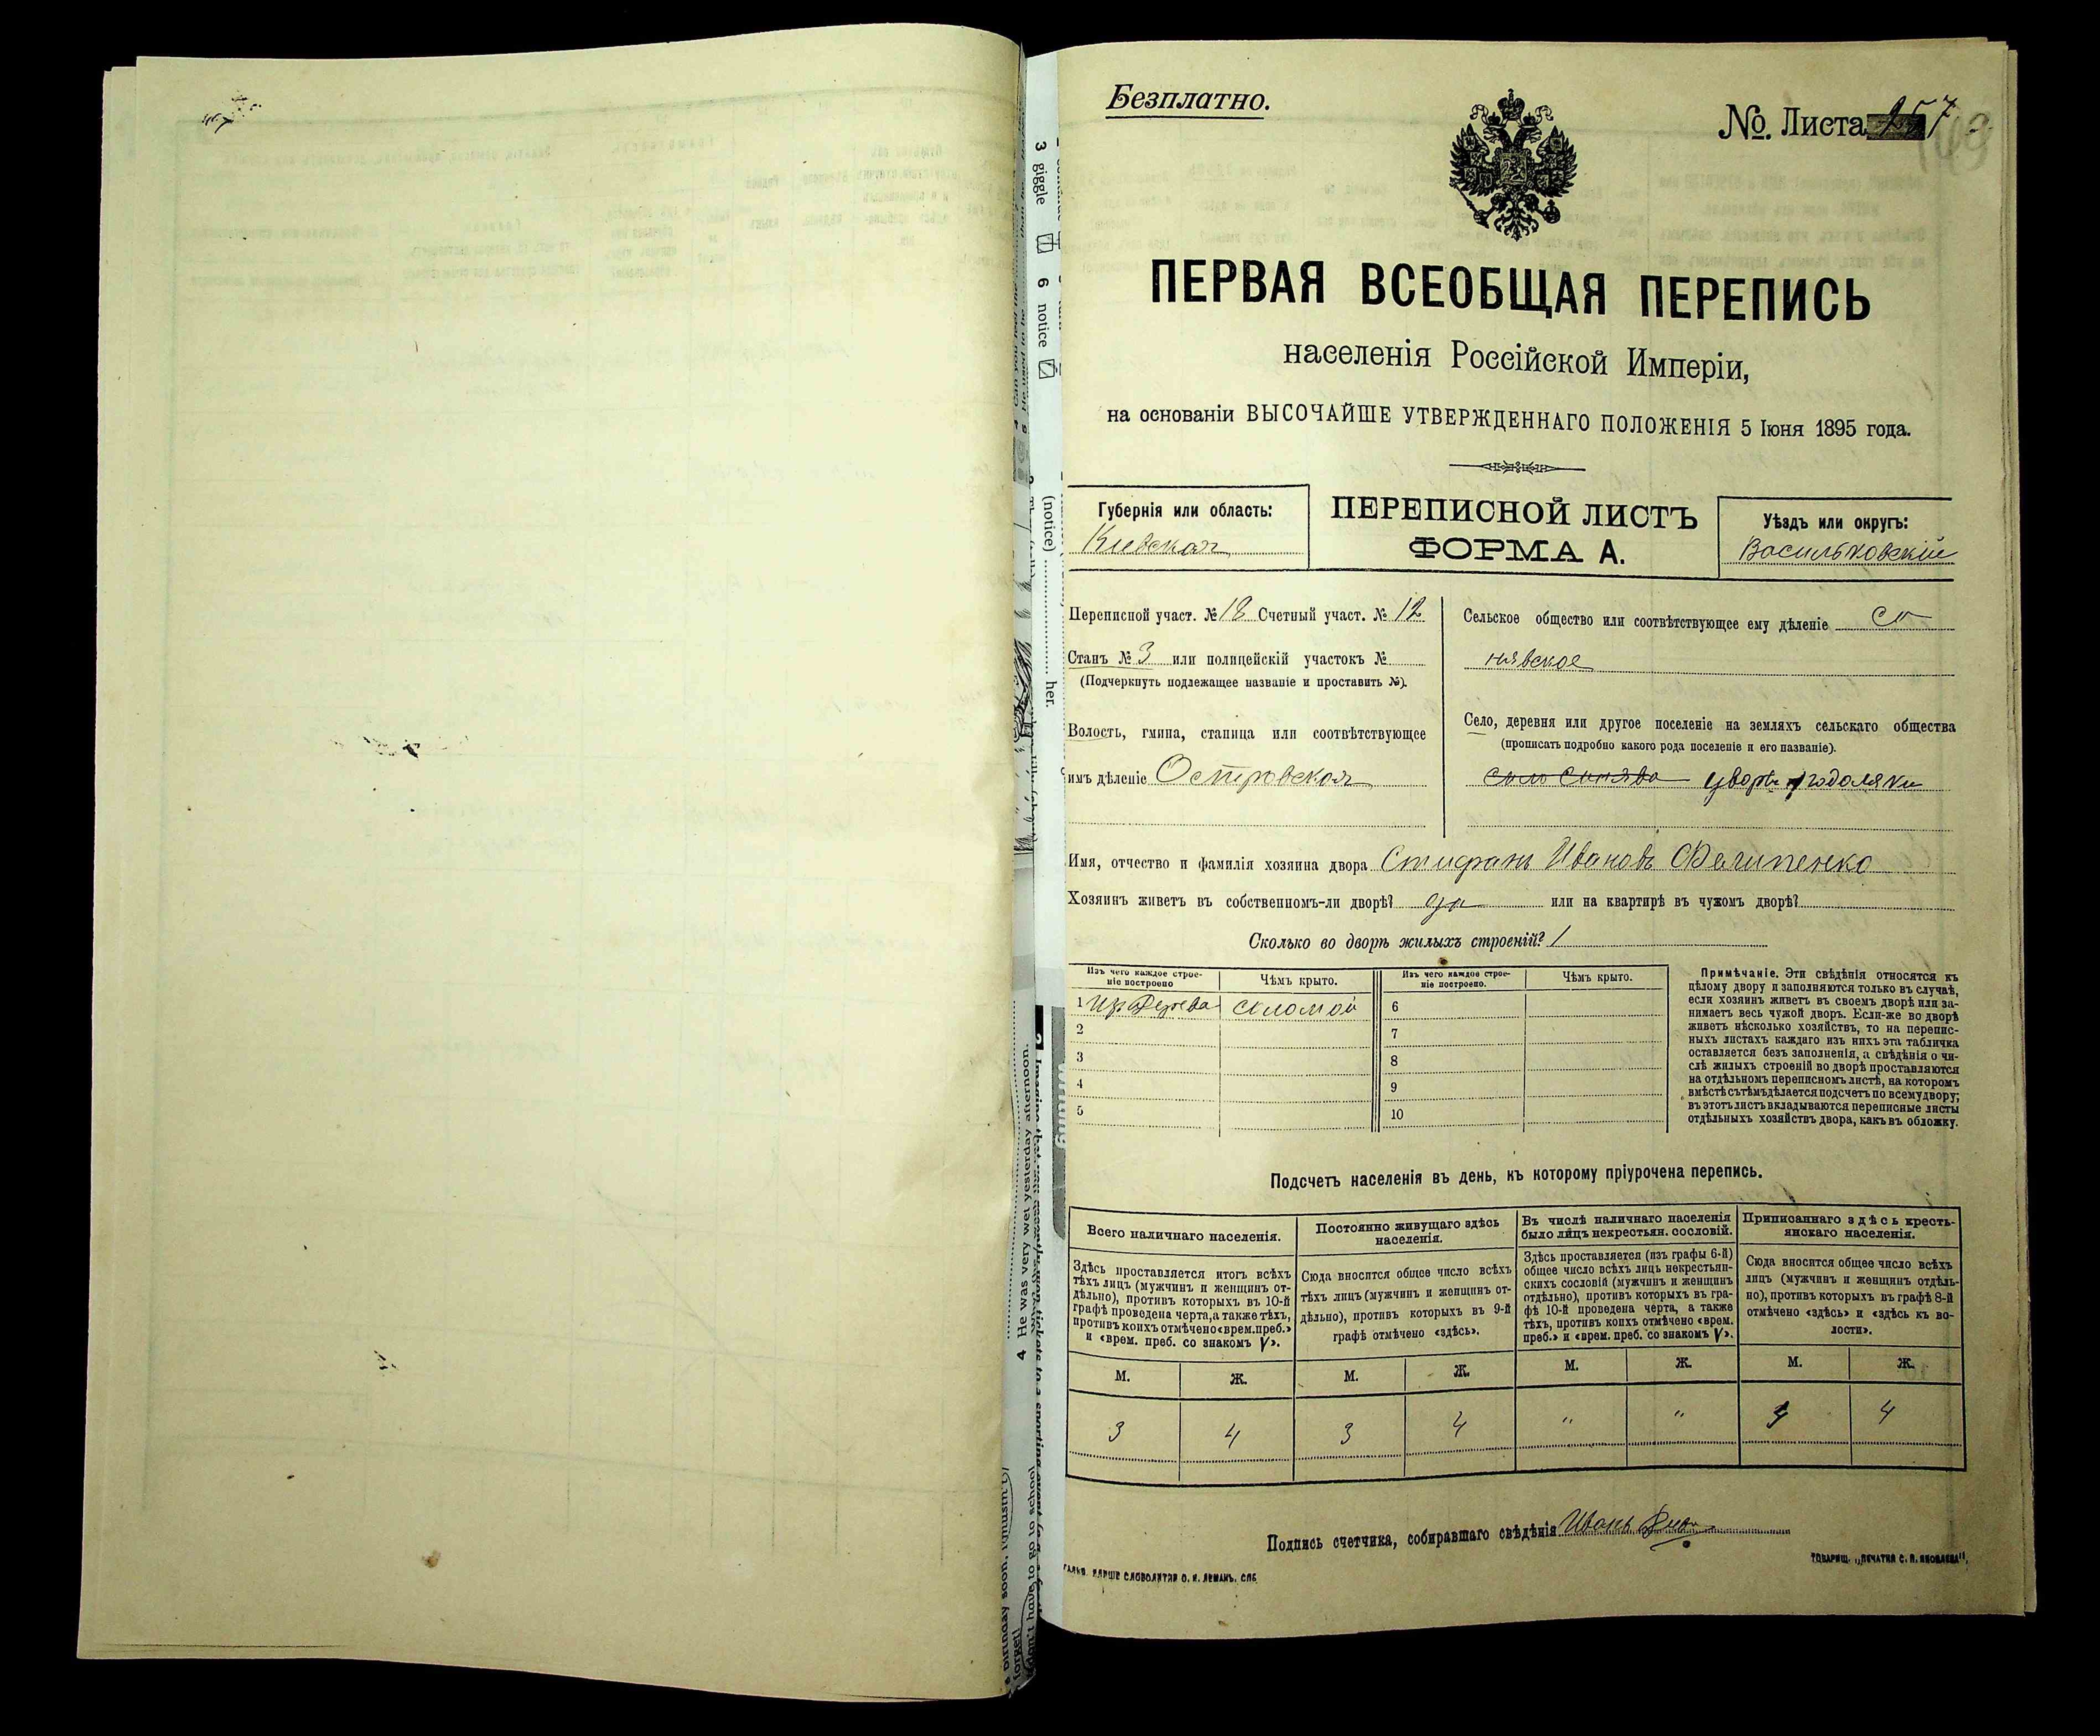 Безплатно.
№ Листа 257
ПЕРВАЯ ВСЕОБЩАЯ ПЕРЕПИСЬ
населенія Россійской Имперіи,
на основаніи ВЫСОЧАЙШЕ УТВЕРЖДЕННАГО ПОЛОЖЕНІЯ 5 Іюня 1895 года.
Губернія или область:
Киевская
ПЕРЕПИСНОЙ ЛИСТЪ
ФОРМА А.
Уѣздъ или округъ:
Васильковскій
Переписной участ. № 18 Счетный участ. № 12
Станъ № 3 или полицейскій участокъ №
(Подчеркнуть подлежащее названіе и проставить №).
Волость, гмина, станица или соотвѣтствующее
имъ дѣленіе Островская
Сельское общество или соотвѣтствующее ему дѣленіе Си
нявское
Село, деревня или другое поселеніе на земляхъ сельскаго общества
(прописать подробно какого рода поселеніе и его названіе).
село Синява
Имя, отчество и фамилія хозяина двора Стифанъ Ивановъ Филипенко
Хозяинъ живетъ въ собственномъ-ли дворѣ? да или на квартирѣ въ чужомъ дворѣ?
Сколько во дворѣ жилыхъ строеній? 1
Изъ чего каждое строе-
ніе построено
Чѣмъ крыто.
Изъ чего каждое строе-
ніе построено.
Чѣмъ крыто.
1 Изъ Дерева соломой 6
2 7
3 8
4 9
5 10
Примѣчаніе. Эти свѣдѣнія относятся къ
цѣлому двору и заполняются только въ случаѣ,
если хозяинъ живетъ въ своемъ дворѣ или за-
нимаетъ весь чужой дворъ. Если-же во дворѣ
живетъ нѣсколько хозяйствъ, то на перепис-
ныхъ листахъ каждаго изъ нихъ эта табличка
оставляется безъ заполненія, а свѣдѣнія о чи-
слѣ жилыхъ строеній во дворѣ проставляются
на отдѣльномъ переписномъ листѣ, на которомъ
вмѣстѣ съ тѣмъ дѣлается подсчетъ по всему двору;
въ этотъ листъ вкладываются переписные листы
отдѣльныхъ хозяйствъ двора, какъ въ обложку.
Подсчетъ населенія въ день, къ которому пріурочена перепись.
Всего наличнаго населенія.
Здѣсь проставляется итогъ всѣхъ
тѣхъ лицъ (мужчинъ и женщинъ от-
дѣльно), противъ которыхъ въ 10-й
графѣ проведена черта, а также тѣхъ,
противъ коихъ отмѣчено «врем. преб.»
и «врем. преб. со знакомъ V».
Постоянно живущаго здѣсь
населенія.
Сюда вносится общее число всѣхъ
тѣхъ лицъ (мужчинъ и женщинъ от-
дѣльно), противъ которыхъ въ 9-й
графѣ отмѣчено «здѣсь».
Въ числѣ наличнаго населенія
было лицъ некрестьян. сословій.
Здѣсь проставляется (изъ графы 6-й)
общее число всѣхъ лицъ некрестьян-
скихъ сословій (мужчинъ и женщинъ
отдѣльно), противъ которыхъ въ гра-
фѣ 10-й проведена черта, а также
тѣхъ, противъ коихъ отмѣчено «врем.
преб.» и «врем. преб. со знакомъ V».
Приписаннаго здѣсь кресть-
янскаго населенія.
Сюда вносится общее число всѣхъ
лицъ (мужчинъ и женщинъ отдѣль-
но), противъ которыхъ въ графѣ 8-й
отмѣчено «здѣсь» и «здѣсь къ во-
лости».
М. Ж. М. Ж. М. Ж. М. Ж.
3 4 3 4 " " 3 4
Подпись счетчика, собиравшаго свѣдѣнія Иванъ
ТОВАРИЩ. „ПЕЧАТНЯ С. П. ЯКОВЛЕВА".
СЛОВОЛИТНИ О. И. ЛЕМАНЪ. СПБ
3 giggle
6 notice
(notice)
her.
4 He was very wet yesterday afternoon.
have to go to school